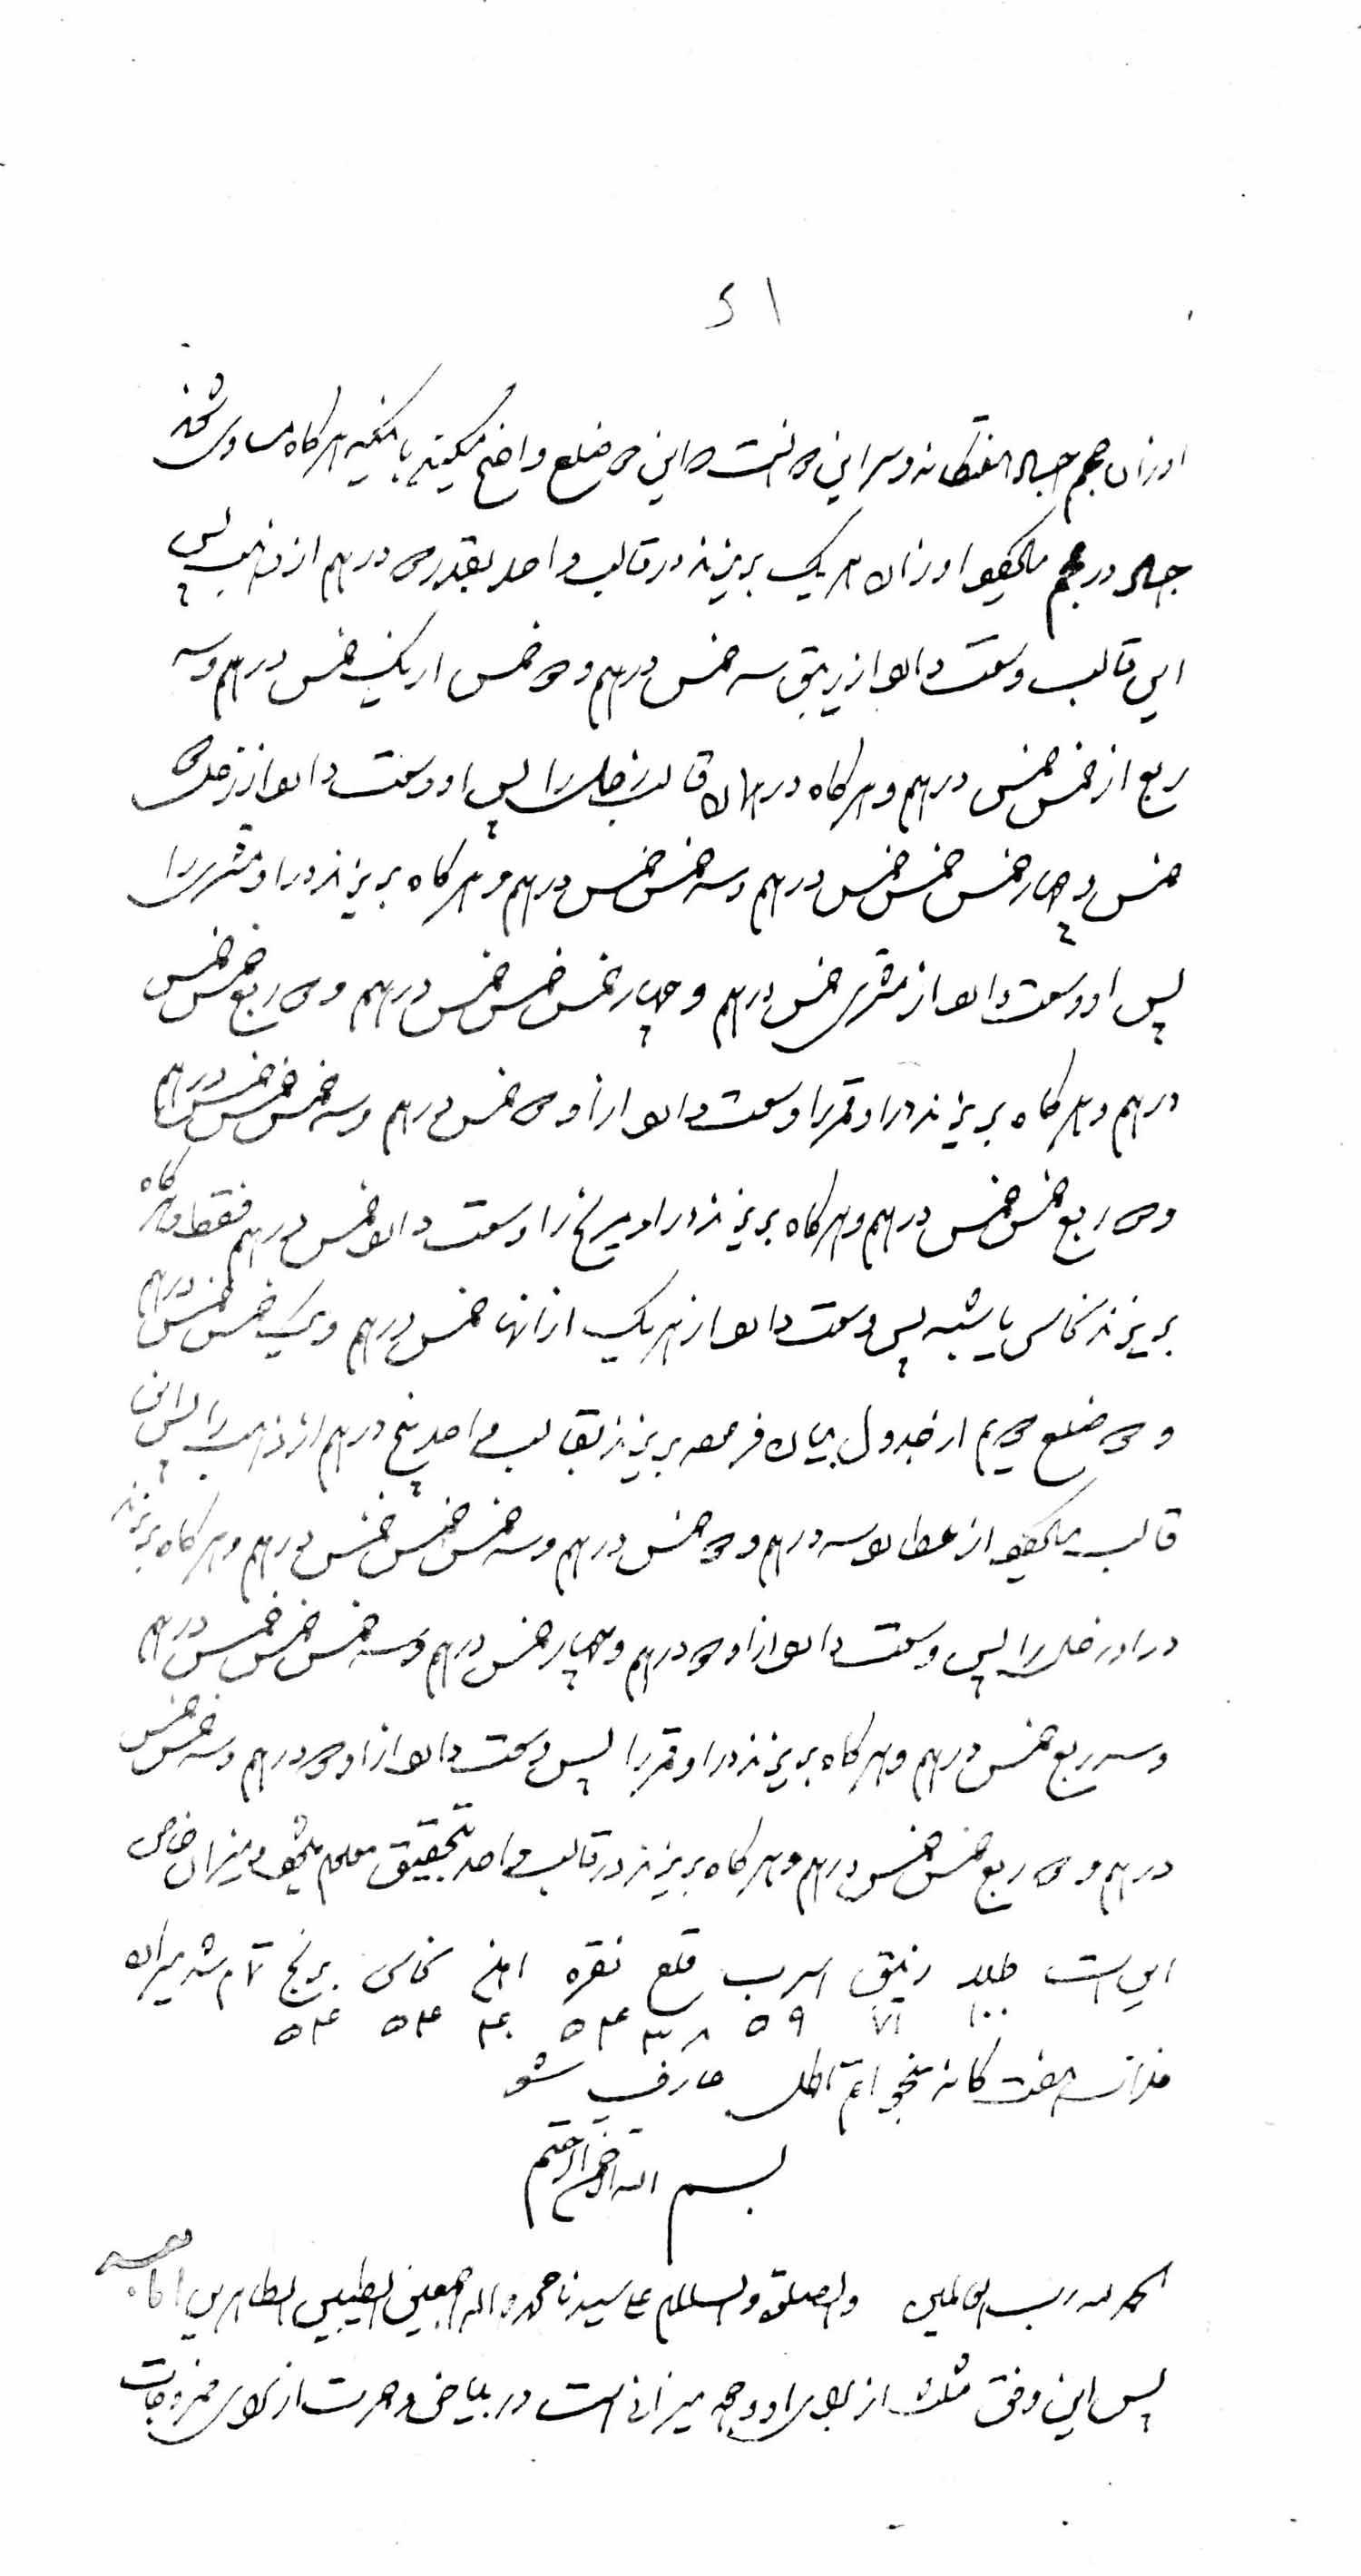 ۶۱
اوزان حجم جبال هفتگانه و سر این است و این دو ضلع واضح میکنیم هرگاه مساوی شد
در حجم اوزان هر یک بریزند در قالب واحد بقدر دو درهم از ذهب پس
این قالب وسعت دارد از زیبق سه خمس درهم و دو خمس خمس درهم و سه
ربع از خمس خمس درهم و هرگاه در همان قالب زحل را پس او وسعت دارد از زحل دو
خمس و چهار خمس خمس خمس درهم و سه خمس خمس درهم و هرگاه بریزند در او مشتری را
پس او وسعت دارد از مشتری خمس درهم و چهار خمس خمس خمس درهم و دو ربع خمس خمس
درهم و هرگاه بریزند در او قمر را وسعت دارد از او دو خمس درهم و سه خمس خمس خمس درهم
و دو ربع خمس خمس درهم و هرگاه بریزند در او مریخ را وسعت دارد خمس درهم فقط و هرگاه
بریزند نحاس یا شبه پس وسعت دارد از هر یک از آنها خمس درهم و یک خمس خمس درهم
و دو ضلع دویم از جدول بیان فرموده بریزند بقالب واحد پنج درهم از ذهب را پس این
قالب میگیرد از عطارد سه درهم و دو خمس درهم و سه خمس خمس خمس درهم و هرگاه بریزند
در او زحل را پس وسعت دارد از او دو درهم و چهار خمس درهم و سه خمس خمس خمس درهم
و سه ربع خمس درهم و هرگاه بریزند در او قمر را پس وسعت دارد از او دو درهم و سه خمس خمس
درهم و دو ربع خمس خمس درهم و هرگاه بریزند در قالب واحد بتحقیق معلوم میشود میزان خاص
این است طلا زیبق اسرب قلع نقره آهن نحاس برنج تمام شد میزان
۱۰۰ ۷۱ ۵۹ ۳۸ ۵۴ ۴۰ ۵۴ ۵۴
فلزات هفت گانه عارف شو
بسم الله الرحمن الرحیم
الحمد لله رب العالمین والصلوة والسلام علی سیدنا محمد واله اجمعین الطیبین الطاهرین اما بعد
پس این وفق مثلث از برای اوجه میزانی است در بیاض و حمرت از برای ممزوجات